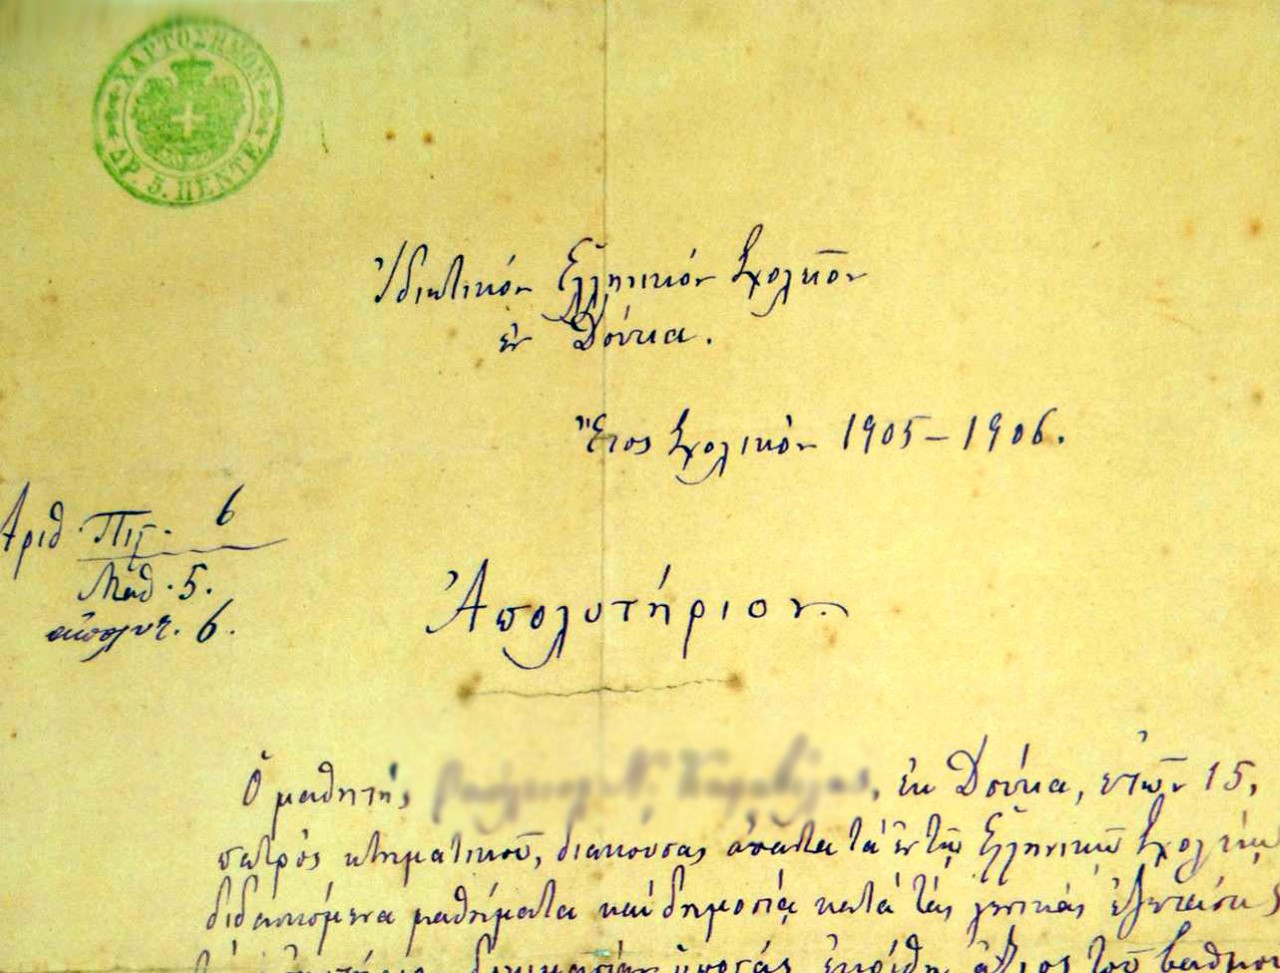 ΧΑΡΤΟΣΗΜΟΝ
ΔΡ. 5. ΠΕΝΤΕ
Ἰδιωτικόν Ἑλληνικόν Σχολεῖον
ἐν Δούκα.
Ἔτος Σχολικόν 1905-1906.
Ἀριθ. Πιστ. 6
Μαθ. 5.
ἀπολυτ. 6.
Ἀπολυτήριον
Ὁ μαθητής , ἐκ Δούκα, ἐτῶν 15,
πατρός κτηματικοῦ, διακούσας ἅπαντα τά ἐν τῷ Ἑλληνικῷ Σχολείῳ
διδασκόμενα μαθήματα καί δημοσίᾳ κατά τάς γενικάς ἐξετάσεις
δοκιμασίαν ὑποστάς ἐκρίθη ἄξιος τοῦ βαθμοῦ